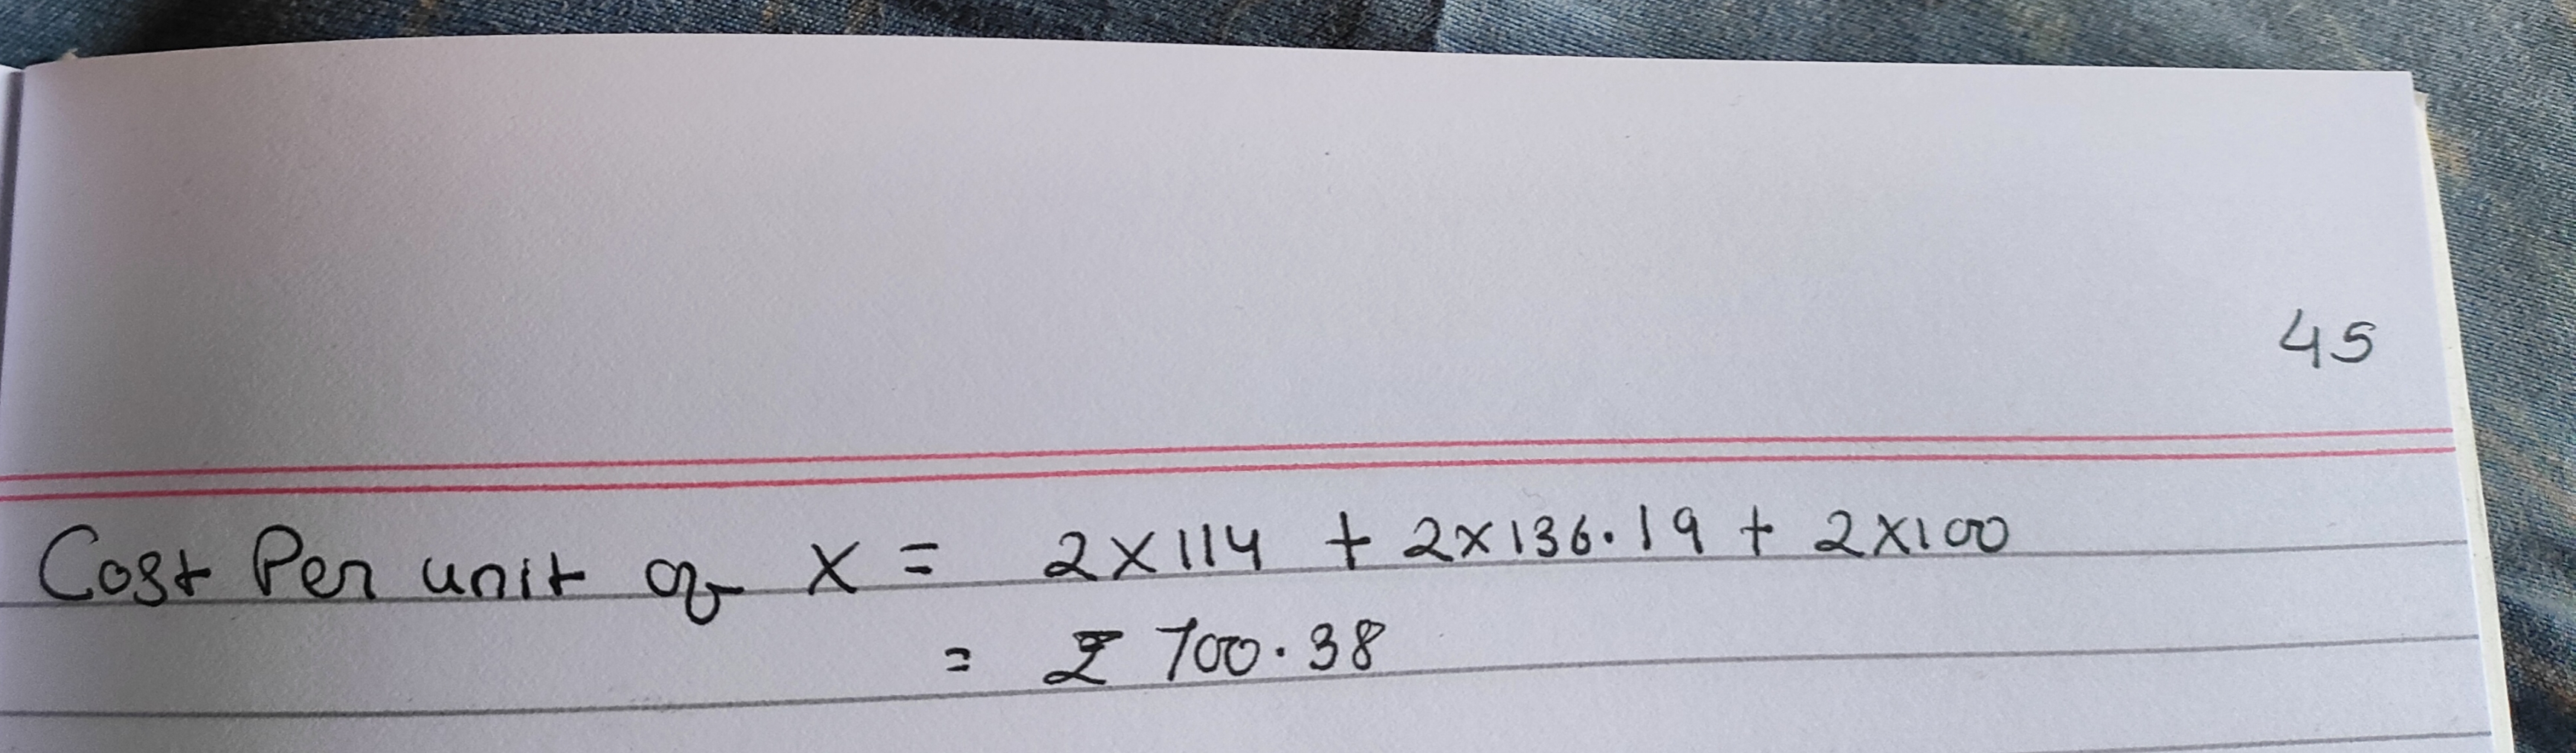 45
Cost Per unit of X = 2×114 + 2×136.19 + 2×100
= ₹ 700.38